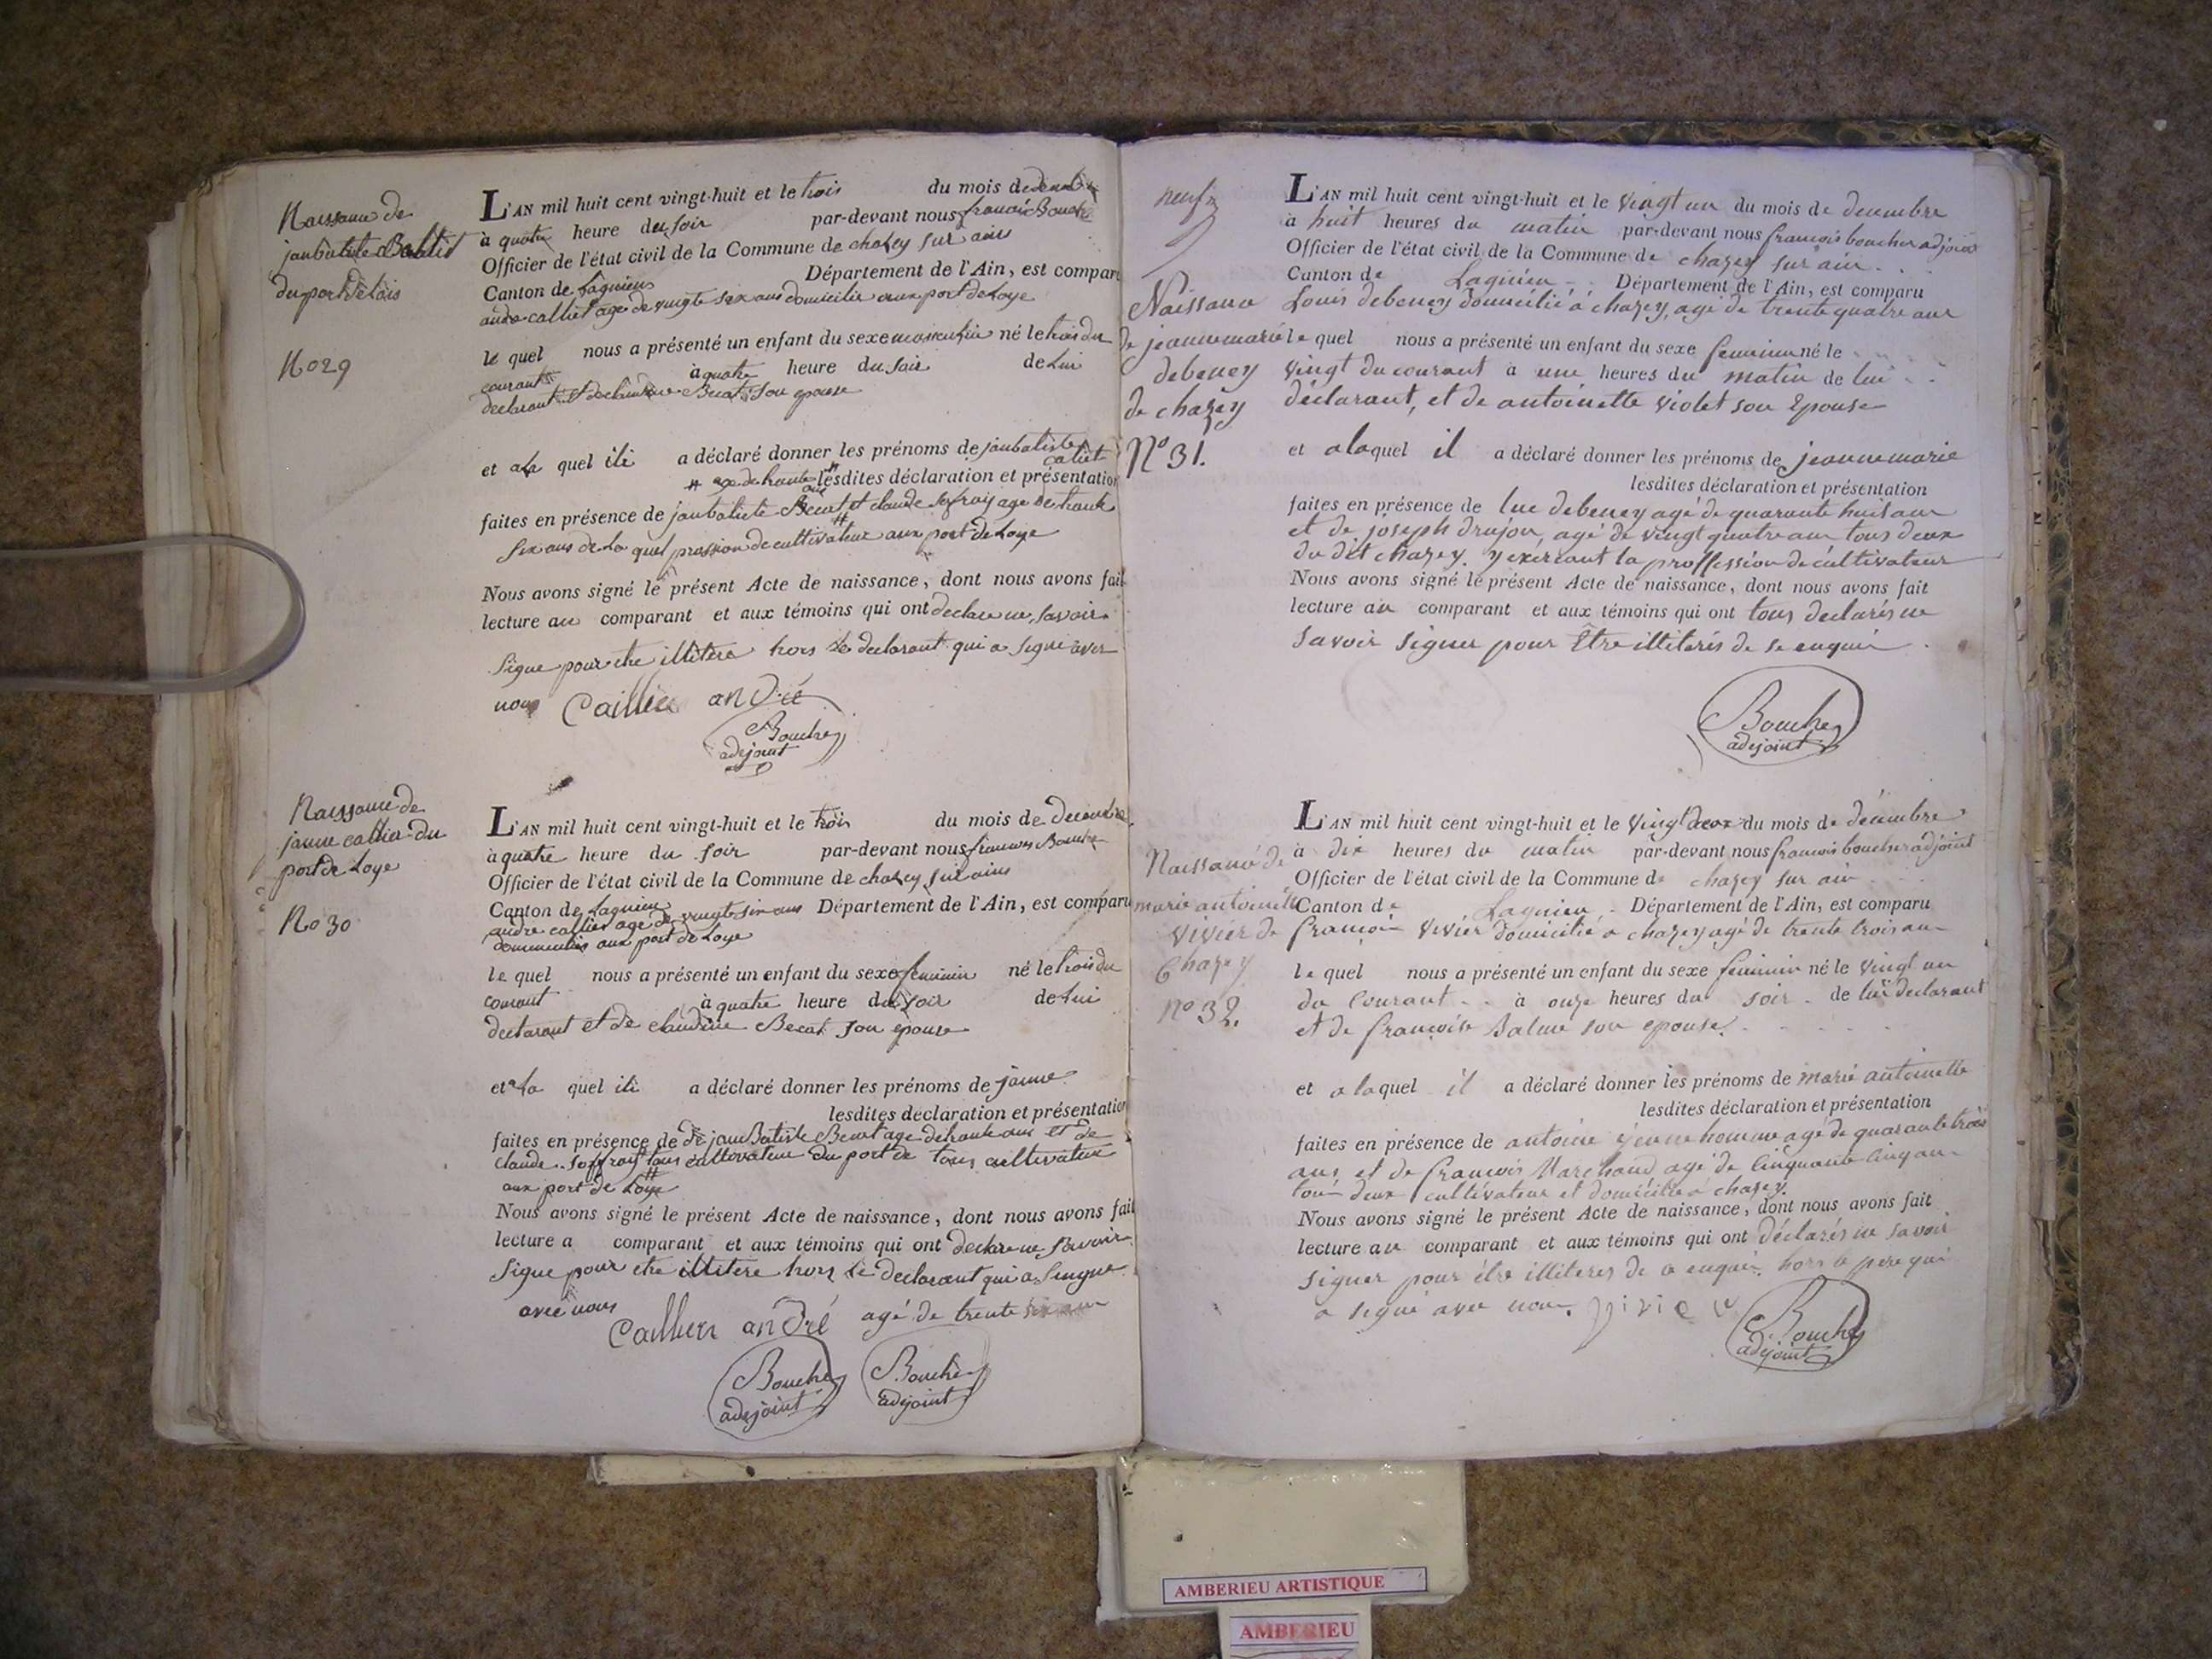 Naissance de
janbatiste
du port de Lois
No 29
L'AN mil huit cent vingt-huit et le trois du mois de
à quatre heure du soir par-devant nous francois Bouche
Officier de l'état civil de la Commune de chazey sur ains
Canton de Lagnieus Département de l'Ain, est compar
andre calliet age de vingte six ans domicilie aux port de Loye
le quel nous a présenté un enfant du sexe masculin né le trois du
courant à quatre heure du soir de Lui
declarant et de claudine Becat son epouse
et a la quel ili a déclaré donner les prénoms de janbatiste
caliet
# age de trante ans lesdites déclaration et présentation
faites en présence de janbatiste Becat et claude age de trante
six ans de La quel de cultivateur aux port de Loye
Nous avons signé le présent Acte de naissance, dont nous avons fait
lecture au comparant et aux témoins qui ont declare ne savoir
signe pour etre illitere hors Le declarant qui a signe avec
nous Caillier andré
Bouche
adejoint
Naissance de
janne callier du
port de Loye
No 30
L'AN mil huit cent vingt-huit et le trois du mois de decembre
à quatre heure du soir par-devant nous francois Bouche
Officier de l'état civil de la Commune de chazey sur ains
Canton de Lagnieu Département de l'Ain, est comparu
andre callier age de vingte six ans
aux port de Loye
le quel nous a présenté un enfant du sexe feminin né le trois du
courant à quatre heure du soir de Lui
declarant et de claudine Becat son epouse
et a la quel ili a déclaré donner les prénoms de janne
lesdites déclaration et présentation
faites en présence de de jan Batiste Becat age de trante ans et de
claude tous cultivateur du port de tous cultivateur
aux port de Loye
Nous avons signé le présent Acte de naissance, dont nous avons fait
lecture a comparant et aux témoins qui ont declare ne savoir
signe pour etre illitere hors Le declarant qui a singne
avec nous
Caillier andré agé de trente six ans
Bouche
adejoint
Bouche
adejoint
neuf
Naissance
de jeanne marie
debeney
de chazey
N° 31.
L'AN mil huit cent vingt-huit et le vingt un du mois de decembre
à huit heures du matin par-devant nous francois boucher adjoint
Officier de l'état civil de la Commune de chazey sur ain
Canton de Lagnieu Département de l'Ain, est comparu
Louis debeney domicilié à chazey, agé de trente quatre ans
le quel nous a présenté un enfant du sexe feminin né le
vingt du courant à une heures du matin de lui
déclarant, et de antoinette violet son Epouse
et a laquel il a déclaré donner les prénoms de jeanne marie
lesdites déclaration et présentation
faites en présence de luc debeney agé de quarante huit ans
et de joseph drujon, agé de vingt quatre ans tous deux
du dit chazey. y exercant la proffession de cultivateur
Nous avons signé le présent Acte de naissance, dont nous avons fait
lecture au comparant et aux témoins qui ont tous declarés ne
savoir signer pour Être illiterés de se enquis
Bouche
adejoint
Naissance de
marie antoinette
vivier de
Chazey
N° 32.
L'AN mil huit cent vingt-huit et le vingt deux du mois de décembre
à dix heures du matin par-devant nous francois boucher adjoint
Officier de l'état civil de la Commune de chazey sur ain
Canton de Lagnieu Département de l'Ain, est comparu
francois vivier domicilié a chazey agé de trente trois ans
le quel nous a présenté un enfant du sexe feminin né le vingt un
du Courant à onze heures du soir de lui declarant
et de francoise Balme son epouse.
et a laquel il a déclaré donner les prénoms de marie antoinette
lesdites déclaration et présentation
faites en présence de antoine jeune homme agé de quarante trois
ans, et de francois Marchand agé de Cinquante Cinq ans
tous deux cultivateur et domicilié a chazey.
Nous avons signé le présent Acte de naissance, dont nous avons fait
lecture au comparant et aux témoins qui ont déclarés ne savoir
signer pour être illiteres de ce enquis. hors le pere qui
a signé avec nous. vivier
Bouche
adejoint
AMBERIEU ARTISTIQUE
AMBERIEU